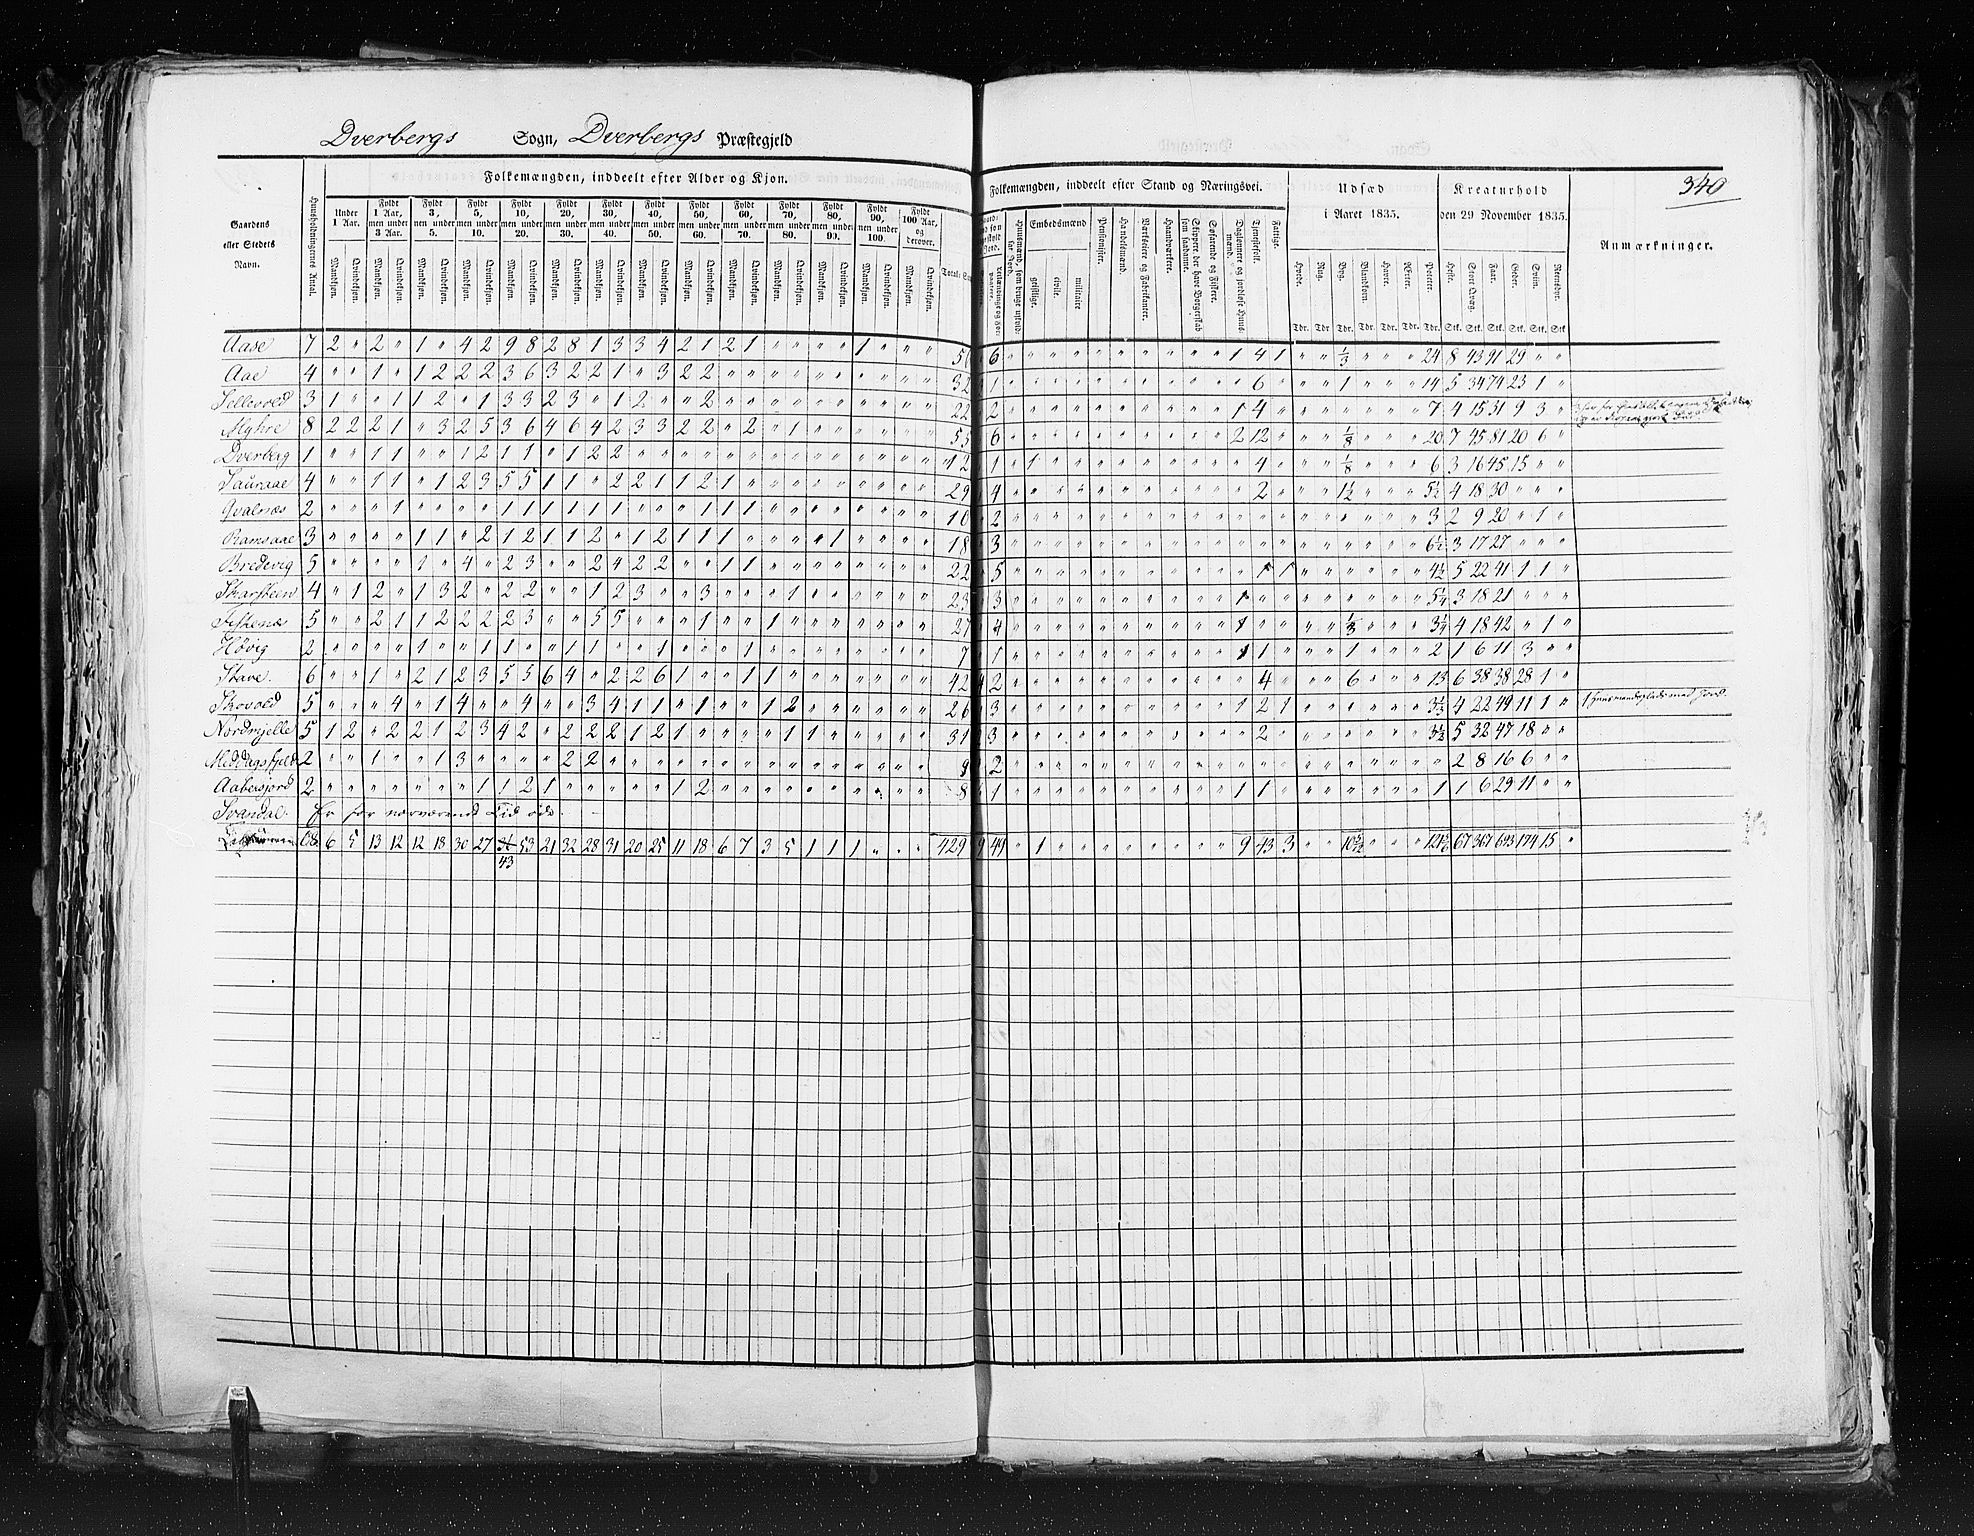 Dverbergs Sogn, Dverbergs Præstegjeld
340
Folkemængden, inddeelt efter Alder og Kjøn.
Folkemængden, inddeelt efter Stand og Næringsvei.
Udsæd i Aaret 1835.
Kreaturhold den 29 November 1835.
Anmærkninger.
Gaardens eller Stedets Navn.
Huusholdningernes Antal.
Under 1 Aar.
Fyldt 1 Aar, men under 3 Aar.
Fyldt 3, men under 5.
Fyldt 5, men under 10.
Fyldt 10, men under 20.
Fyldt 20, men under 30.
Fyldt 30, men under 40.
Fyldt 40, men under 50.
Fyldt 50, men under 60.
Fyldt 60, men under 70.
Fyldt 70, men under 80.
Fyldt 80, men under 90.
Fyldt 90, men under 100.
Fyldt 100 Aar, og derover.
Mandkjøn. Qvindekjøn.
Embedsmænd
geistlige. civile. militaire
Pensionister. Handelsmænd. Værkseiere og Fabrikanter. Haandværkere. Skippere der have Borgerskab som saadanne. Søfarende og Fiskere. Daglønnere og jordløse Huusmænd. Tjenestefolk. Fattige.
Hvede. Rug. Byg. Blandkorn. Havre. Erter. Poteter.
Heste. Stort Qvæg. Faar. Geder. Sviin. Rensdyr.
Tdr. Tdr. Tdr. Tdr. Tdr. Tdr. Tdr. Stk. Stk. Stk. Stk. Stk. Stk.
Aase 7 2 " 2 " 1 " 4 2 9 8 2 8 1 3 3 4 2 1 2 1 " " " " 1 " " " 50 6 1 4 1 1/3 24 8 43 91 29 " "
Aae 4 " " 1 " 1 2 2 2 3 6 3 2 2 1 " 3 2 2 32 1 6 1 14 5 34 74 23 1 "
Sellevold 3 1 " " 1 2 " 1 3 3 2 3 " 1 2 " " 2 22 2 1 4 7 4 15 31 9 3 "
Myhre 8 2 2 2 1 " 3 2 5 3 6 4 6 4 2 3 3 2 2 " 2 " 1 55 6 2 12 1/8 20 7 45 81 20 6 "
Dverberg 1 " " 1 1 " " 1 2 1 1 " 1 2 2 12 1 1 4 1/8 6 3 16 45 15 " "
Sauraae 4 " " 1 1 " 1 2 3 5 5 1 1 " 2 2 1 1 2 1 29 4 2 1 1/2 5 1/2 4 18 30
Qvalnæs 2 " " " 1 " " " " 1 1 1 1 1 1 " " 1 1 1 10 2 3 2 9 20 " 1 "
Ramsaae 3 " " " " 1 1 " 2 1 2 1 1 2 " 1 2 1 1 1 " " " " 1 18 3 6 1/2 3 17 27
Bredevig 5 " " " " 1 " 4 " 2 3 " " 2 4 2 2 " " 1 1 22 5 1 1 4 1/2 5 22 41 1 1 "
Skarsteen 4 " 1 2 " 1 3 2 " 2 2 " " 1 2 3 " " 3 " " " 1 23 3 1 5 1/4 3 18 21
Fiskenæs 5 " " 2 1 1 2 2 2 2 3 " " 5 5 " " " 1 " " 1 27 4 1 1/3 3 1/4 4 18 42 " 1 "
Høvig 2 " " " " 1 " 1 1 " 1 1 " " 1 " " " 1 7 1 1 1 1 2 1 6 11 3 " "
Stave 6 " " 1 " 2 1 2 3 5 5 6 4 " 2 2 6 1 " " 1 1 42 4 2 4 6 13 6 38 38 28 1 "
Skovold 5 " " " 4 " 1 4 " " 4 " " 3 4 1 1 " 1 " " 1 2 26 3 1 2 1 3 1/3 4 22 49 11 1 " 1 Huusmandsplads med Jord.
Nordmjelle 5 1 2 " 2 2 1 2 3 4 2 " 2 2 2 1 2 1 " " " 1 1 31 3 2 3 1/2 5 32 47 18 " "
Middagsfjeld 2 " " 1 " " 1 3 " " " " 2 2 9 2 " 2 8 16 6 " "
Aabersjord 2 " " " " " " " 1 1 2 1 " " " " " 1 2 8 1 1 1 1 1 6 29 11 " "
Svandal. Er for nærværende Tid øde.
6 5 13 12 12 18 30 27 53 21 32 28 31 20 25 11 18 6 7 3 5 1 1 1 " " " 429 9 44 " 1 9 43 3 67 367 693 174 15 "
43